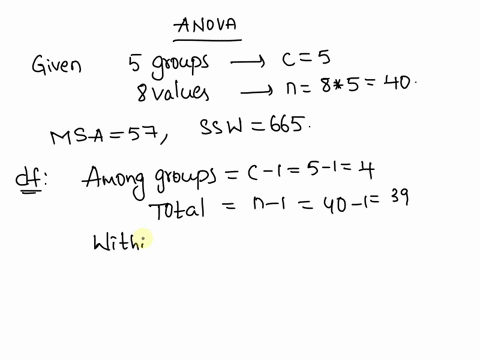 ANOVA
Given 5 groups → c = 5
8 values → n = 8*5 = 40.
MSA = 57, SSW = 665.
df: Among groups = c - 1 = 5 - 1 = 4
Total = n - 1 = 40 - 1 = 39
Withi